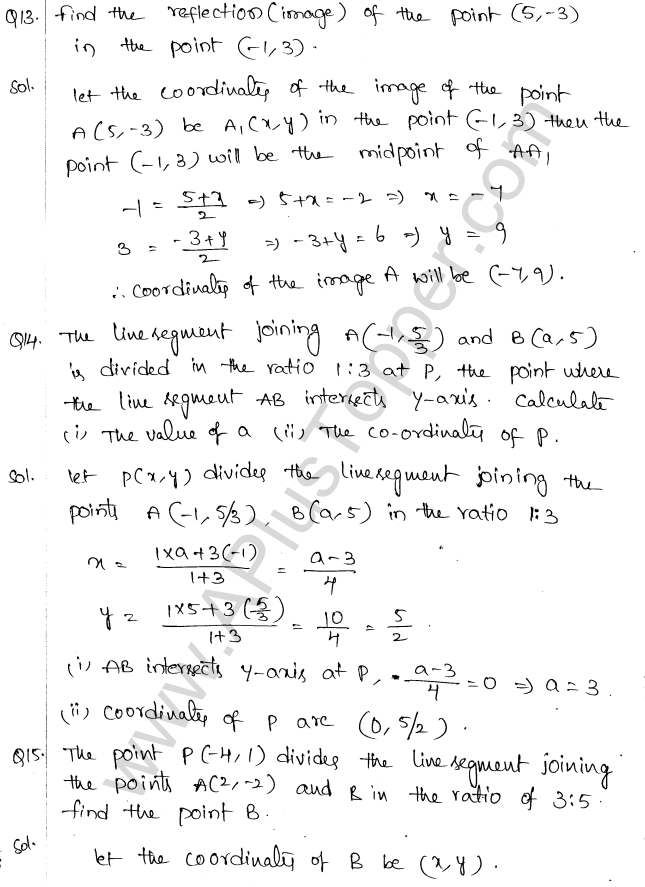 Q13. find the reflection (image) of the point (5,-3)
in the point (-1,3).
Sol. let the coordinates of the image of the point
A(5,-3) be A₁(x,y) in the point (-1,3) then the
point (-1,3) will be the midpoint of AA₁
-1 = (5+x)/2 ⇒ 5+x = -2 ⇒ x = -7
3 = (-3+y)/2 ⇒ -3+y = 6 ⇒ y = 9
∴ coordinates of the image A will be (-7,9).
Q14. The line segment joining A(-1, 5/3) and B(a,5)
is divided in the ratio 1:3 at P, the point where
the line segment AB intersects Y-axis. calculate
(i) The value of a (ii) The co-ordinates of P.
Sol. let P(x,y) divides the line segment joining the
points A(-1, 5/3), B(a,5) in the ratio 1:3
x = (1×a+3(-1))/(1+3) = (a-3)/4
y = (1×5+3(5/3))/(1+3) = 10/4 = 5/2.
(i) AB intersects Y-axis at P, (a-3)/4 = 0 ⇒ a = 3.
(ii) coordinates of P are (0, 5/2).
Q15. The point P(-4,1) divides the line segment joining
the points A(2,-2) and B in the ratio of 3:5.
find the point B.
Sol. let the coordinates of B be (x,y).
www.APlusTopper.com